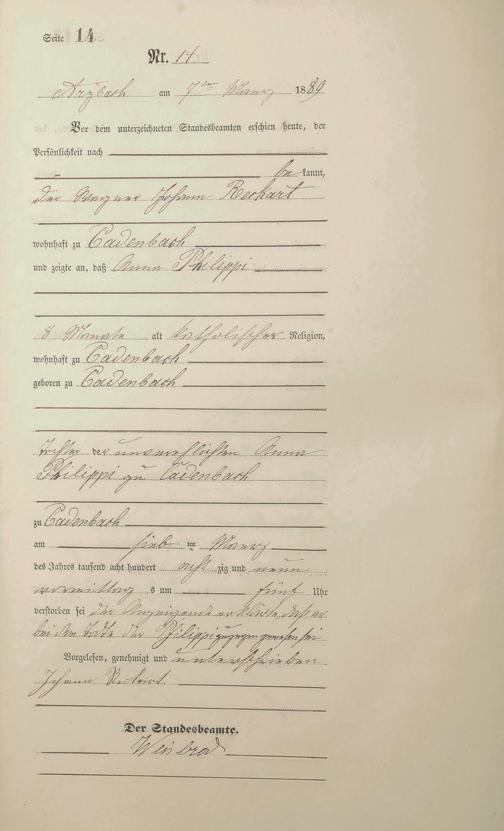 Seite 14
Nr. 14
Arzbach am 7ten Maerz 1889
Vor dem unterzeichneten Standesbeamten erschien heute, der
Persönlichkeit nach
be kannt,
der Wagner Johann Reckart
wohnhaft zu Cadenbach
und zeigte an, daß Anna Philippi
8 Monate alt katholischer Religion,
wohnhaft zu Cadenbach
geboren zu Cadenbach
Tochter der unverehlichten Anna
Philippi zu Cadenbach
zu Cadenbach
am sieb ten Maerz
des Jahres tausend acht hundert acht zig und neun
vormittag s um fünf Uhr
verstorben sei der Anzeigende erklärte, daß er
bei dem Tode der Philippi zugegen gewesen sei
Vorgelesen, genehmigt und unterschrieben
Johann
Der Standesbeamte.
Weisbrod